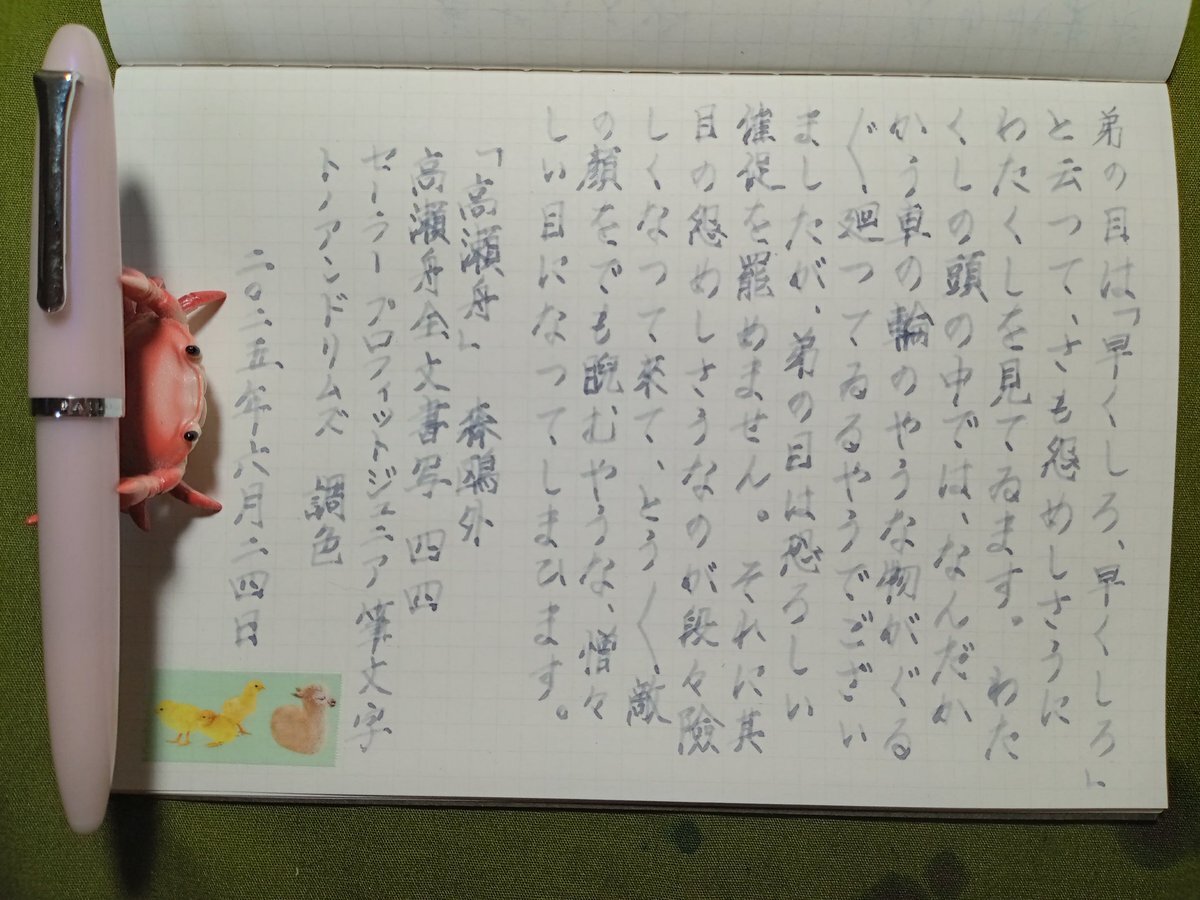 弟の目は「早くしろ、早くしろ」
と云つて、さも怨めしさうに
わたくしを見てゐます。わた
くしの頭の中では、なんだか
かう車の輪のやうな物がぐる
〲廻つてゐるやうでござい
ましたが、弟の目は恐ろしい
催促を罷めません。それに其
目の怨めしさうなのが段々險
しくなつて來て、とう〱敵
の顔をでも睨むやうな、憎々
しい目になつてしまひます。
「高瀬舟」 森鴎外
高瀬舟全文書写 四四
セーラー プロフィットジュニア 筆文字
トノアンドリムズ 調色
二〇二五年六月二四日
SAIL